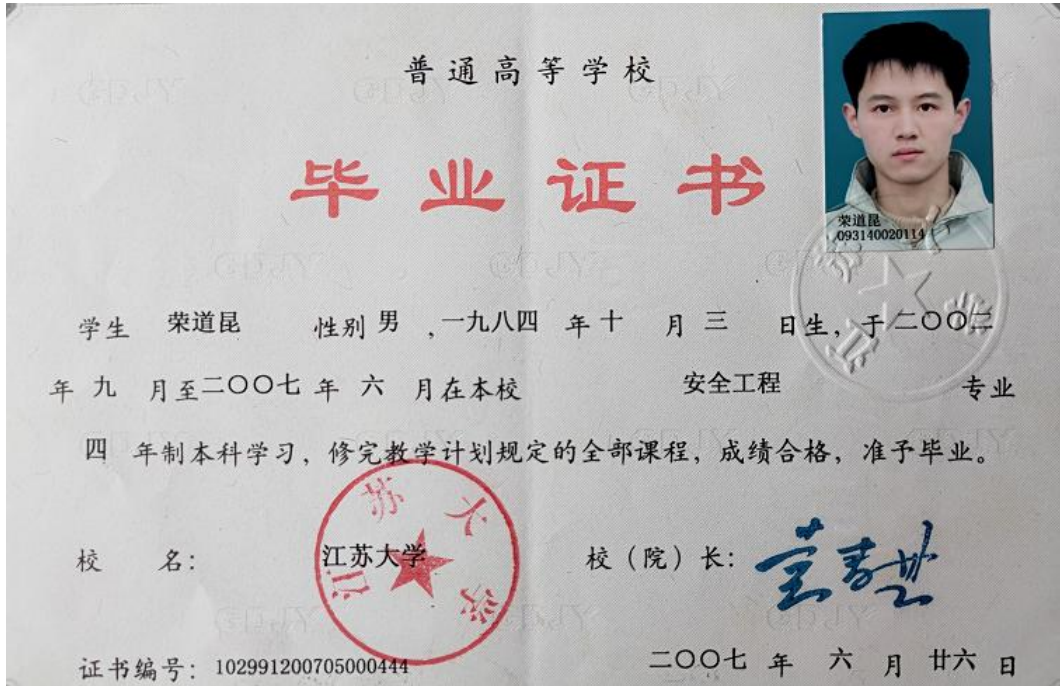 普通高等学校
毕业证书
荣道昆
093140020114
学生 荣道昆 性别 男 ,一九八四 年 十 月 三 日生，于二〇〇二
年 九 月至二〇〇七 年 六 月在本校 安全工程 专业
四 年制本科学习，修完教学计划规定的全部课程，成绩合格，准予毕业。
校 名： 江苏大学 校（院）长：
江苏大学
证书编号：102991200705000444 二〇〇七 年 六 月 廿六 日